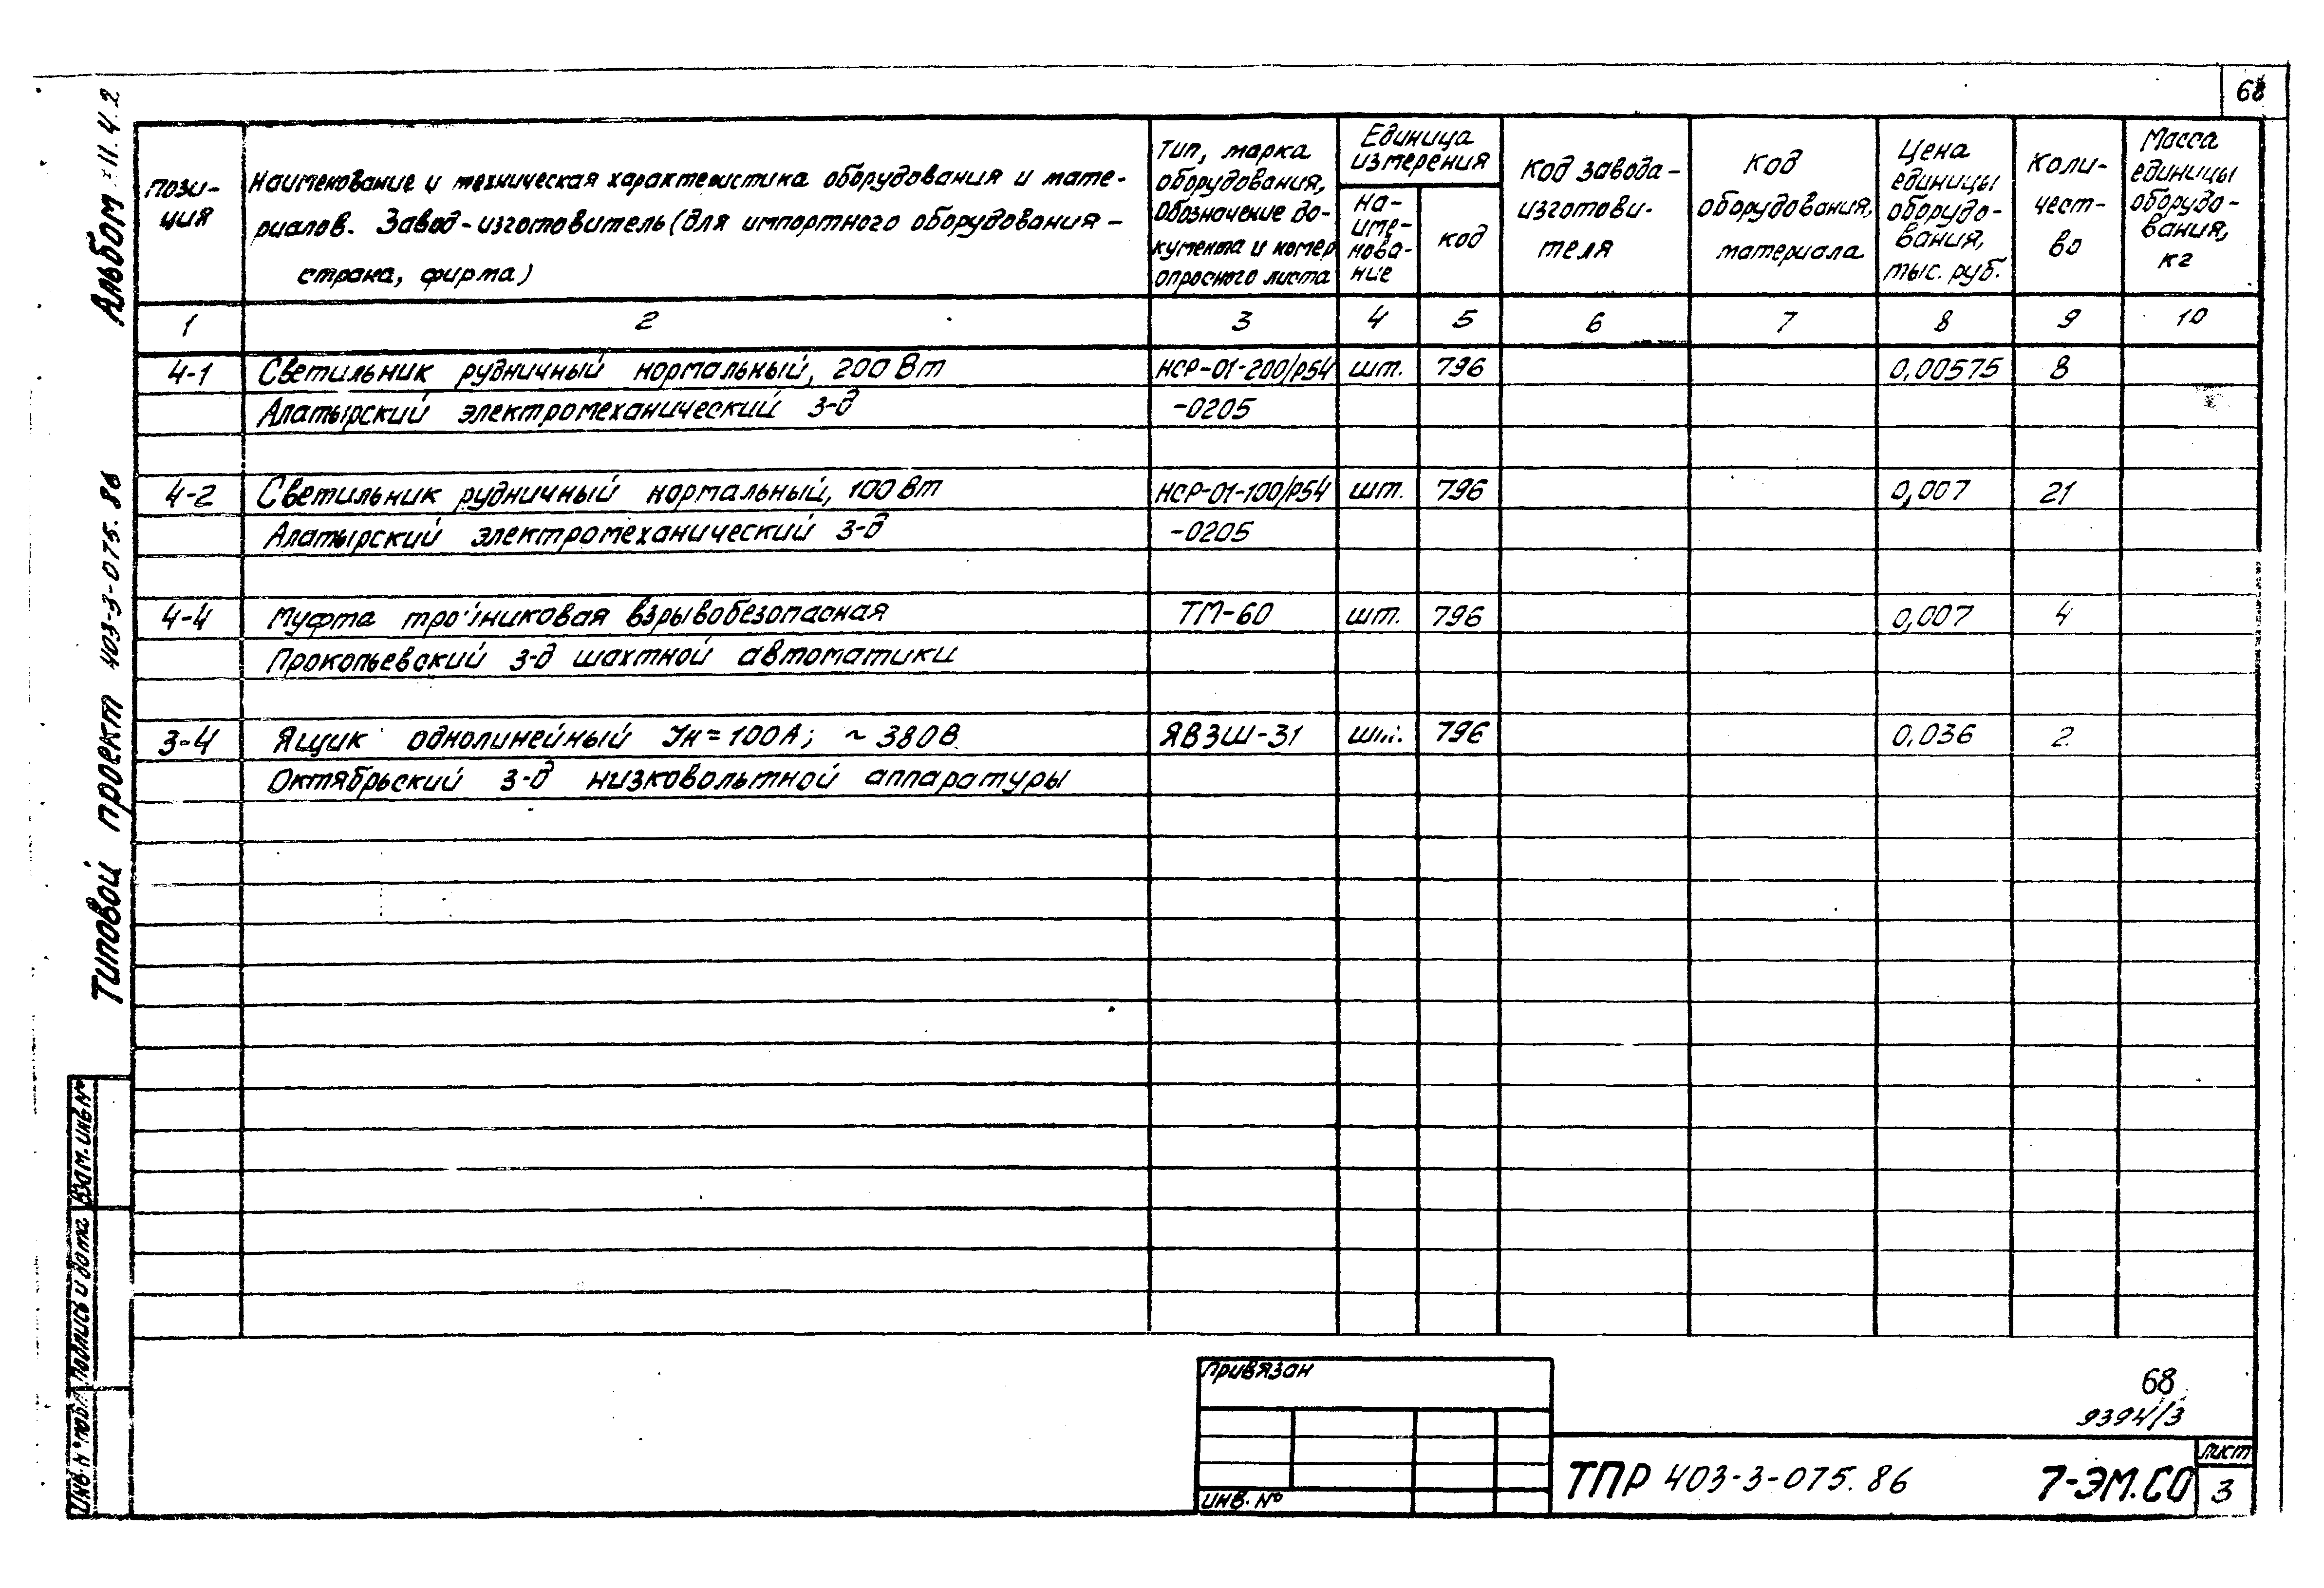 68
Альбом II.4.2
Типовой проект 403-3-075.86
Пози-
ция
Наименование и техническая характеристика оборудования и мате-
риалов. Завод-изготовитель (для импортного оборудования -
страна, фирма)
Тип, марка
оборудования,
Обозначение до-
кумента и номер
опросного листа
Единица
измерения
На-
име-
нова-
ние
код
Код завода-
изготови-
теля
Код
оборудования,
материала
Цена
единицы
оборудо-
вания,
тыс. руб.
Коли-
чест-
во
Масса
единицы
оборудо-
вания,
кг
1 2 3 4 5 6 7 8 9 10
4-1 Светильник рудничный нормальный, 200 Вт НСР-01-200/Р54 шт. 796 0,00575 8
Алатырский электромеханический з-д -0205
4-2 Светильник рудничный нормальный, 100 Вт НСР-01-100/Р54 шт. 796 0,007 21
Алатырский электромеханический з-д -0205
4-4 Муфта тройниковая взрывобезопасная ТМ-60 шт. 796 0,007 4
Прокопьевский з-д шахтной автоматики
3-4 Ящик однолинейный Iн=100А; ~380В ЯВЗШ-31 шт. 796 0,036 2
Октябрьский з-д низковольтной аппаратуры
Взам. инв. №
Подпись и дата
Инв. № подл.
Привязан
Инв. №
68
9394/3
ТПР 403-3-075.86 7-ЭМ.СО
Лист
3